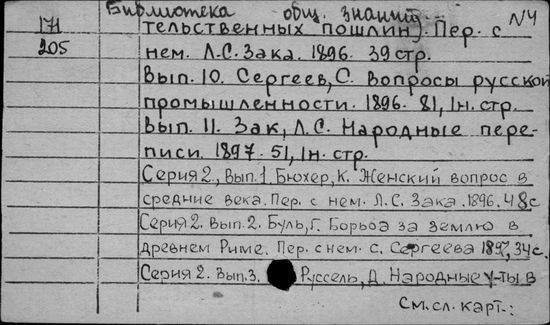 Библиотека общ. знаний N4
171 тельственных пошлин). Пер. с
205 нем. Л.С. Зака. 1896. 39 стр.
Вып. 10. Сергеев, С. Вопросы русской
промышленности. 1896. 81, 1н. стр.
Вып. 11. Зак, Л.С. Народные пере-
писи. 1897. 51, 1н. стр.
Серия 2, Вып. 1. Бюхер, К. Женский вопрос в
средние века. Пер. с нем. Л.С. Зака. 1896. 48 с.
Серия 2. Вып. 2. Буль, Г. Борьба за землю в
древнем Риме. Пер. с нем. С. Сергеева 1897, 34 с.
Серия 2. Вып. 3. Руссель, Д. Народные у-ты в
См. сл. карт.: